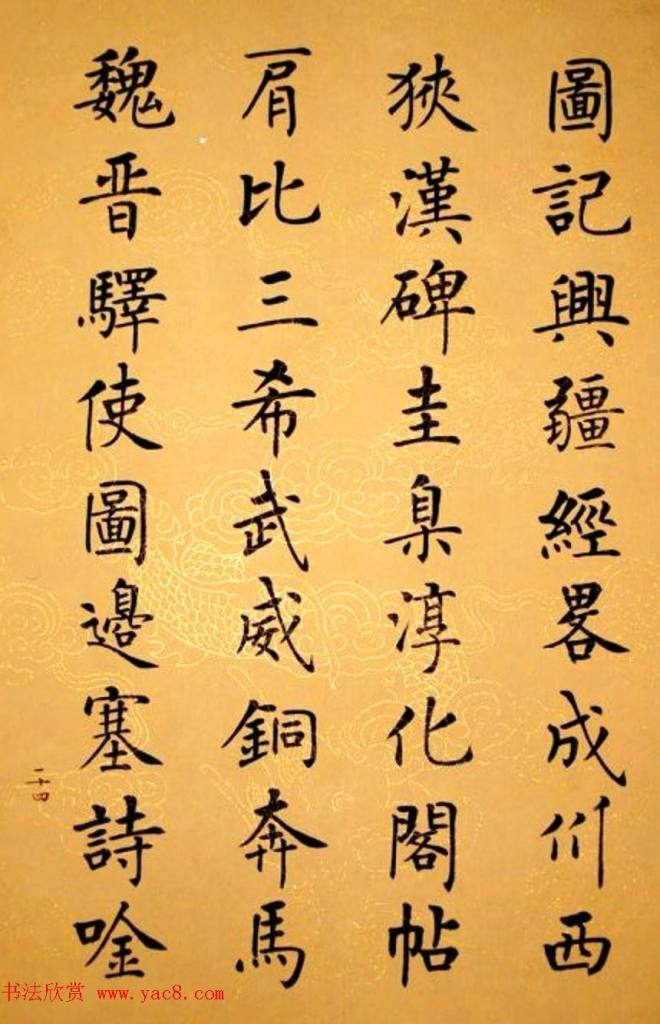 圖記興疆經畧成州西
狹漢碑圭臬淳化閣帖
肩比三希武威銅奔馬
魏晋驛使圖邊塞詩唫
一十四
书法欣赏 www.yac8.com